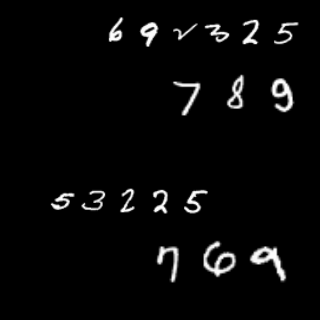 6 9 2 3 2 5
7 8 9
5 3 2 2 5
7 6 9